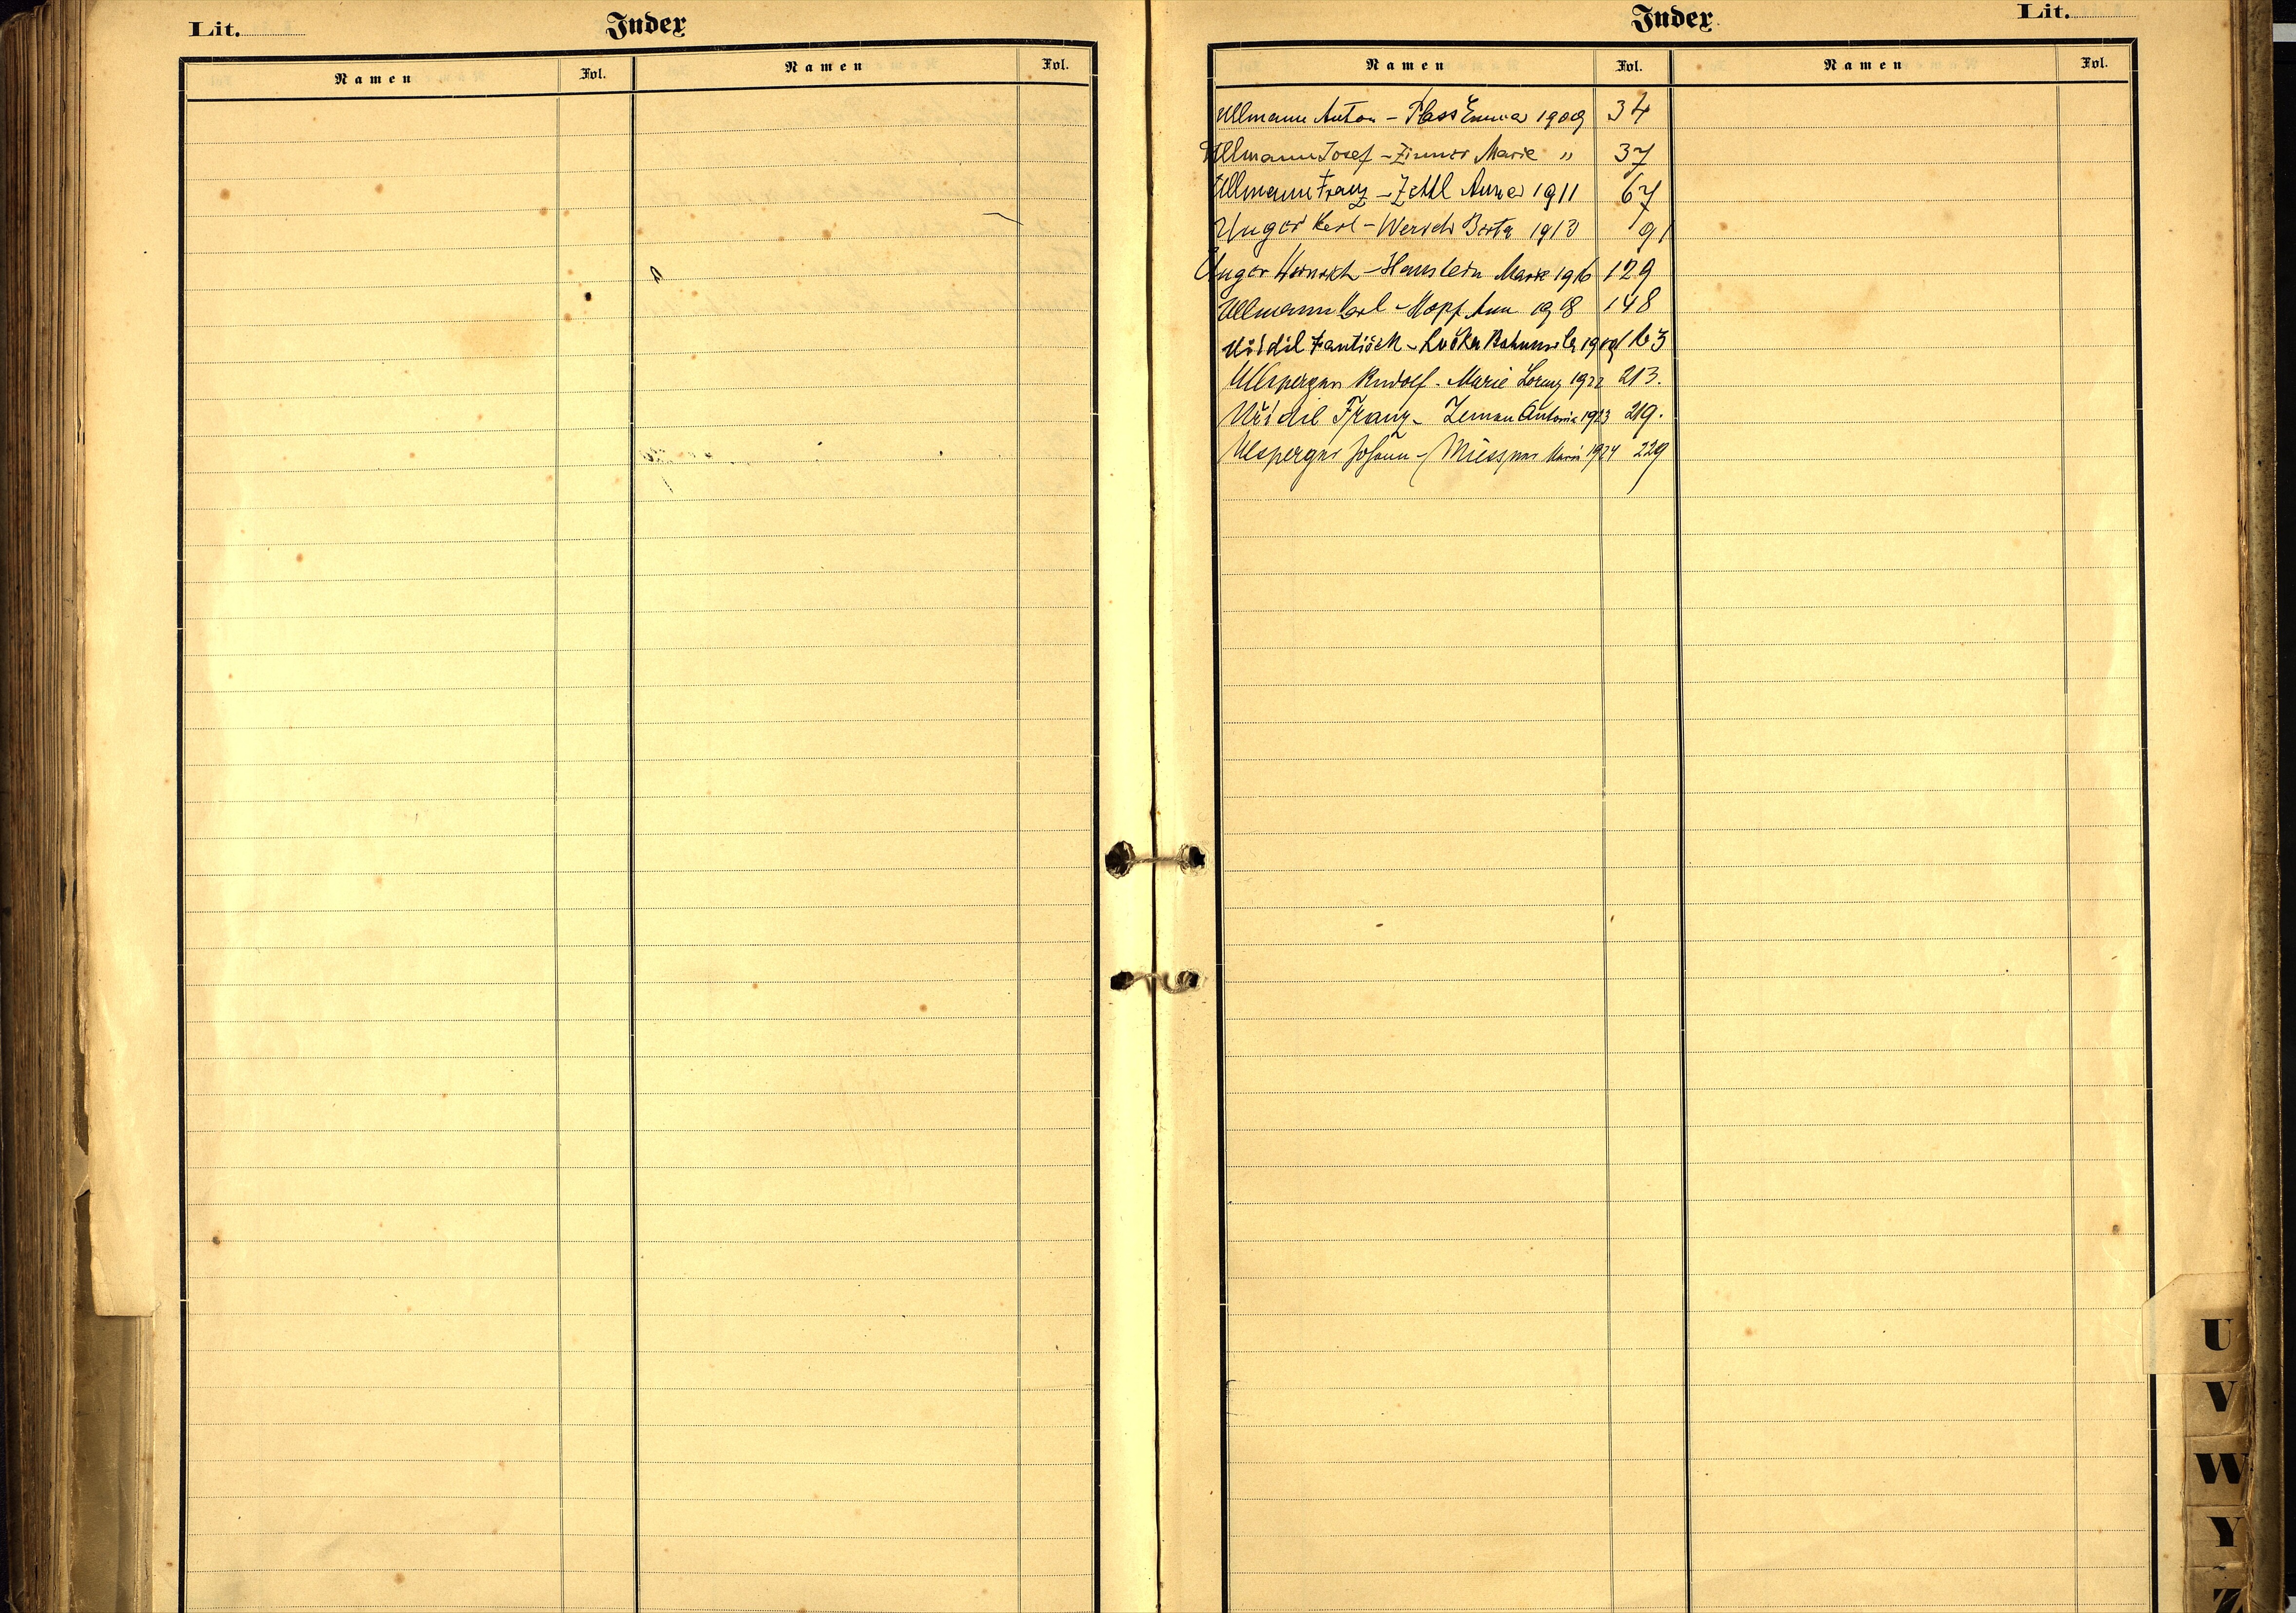 Lit.
Index
Namen Fol. Namen Fol.
Index
Lit.
Namen Fol. Namen Fol.
Ullmann Anton - Plass Emma 1909 34
Ullmann Josef - Zinner Marie " 37
Ullmann Franz - Zettl Anna 1911 67
Unger Karl - Wersch Berta 1913 91
Unger Heinrich - Haustein Marie 1916 129
Ullmann Karl - Hopf Ann 1918 148
František - 163
Ullsperger Rudolf - Marie Lorenz 1922 213.
Franz - Zeman Antonia 1923 219.
Ulsperger Johann - 1924 229
U
V
W
Y
Z